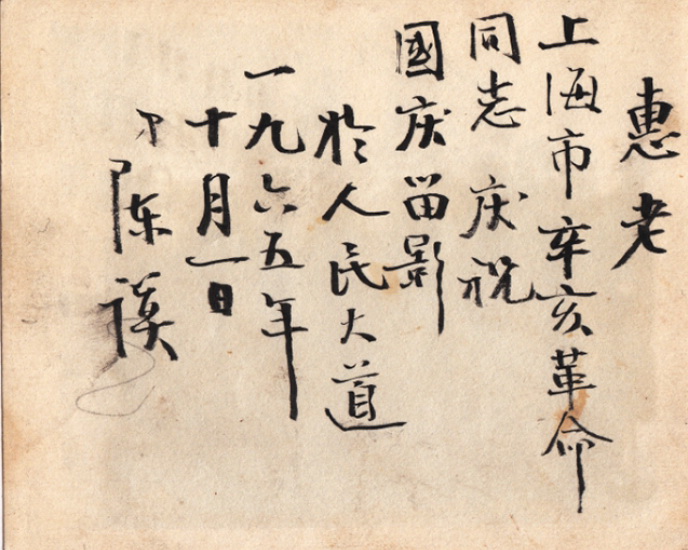 惠老
上海市辛亥革命
同志 庆祝
國庆留影
於人民大道
一九六五年
十月一日
陈谟